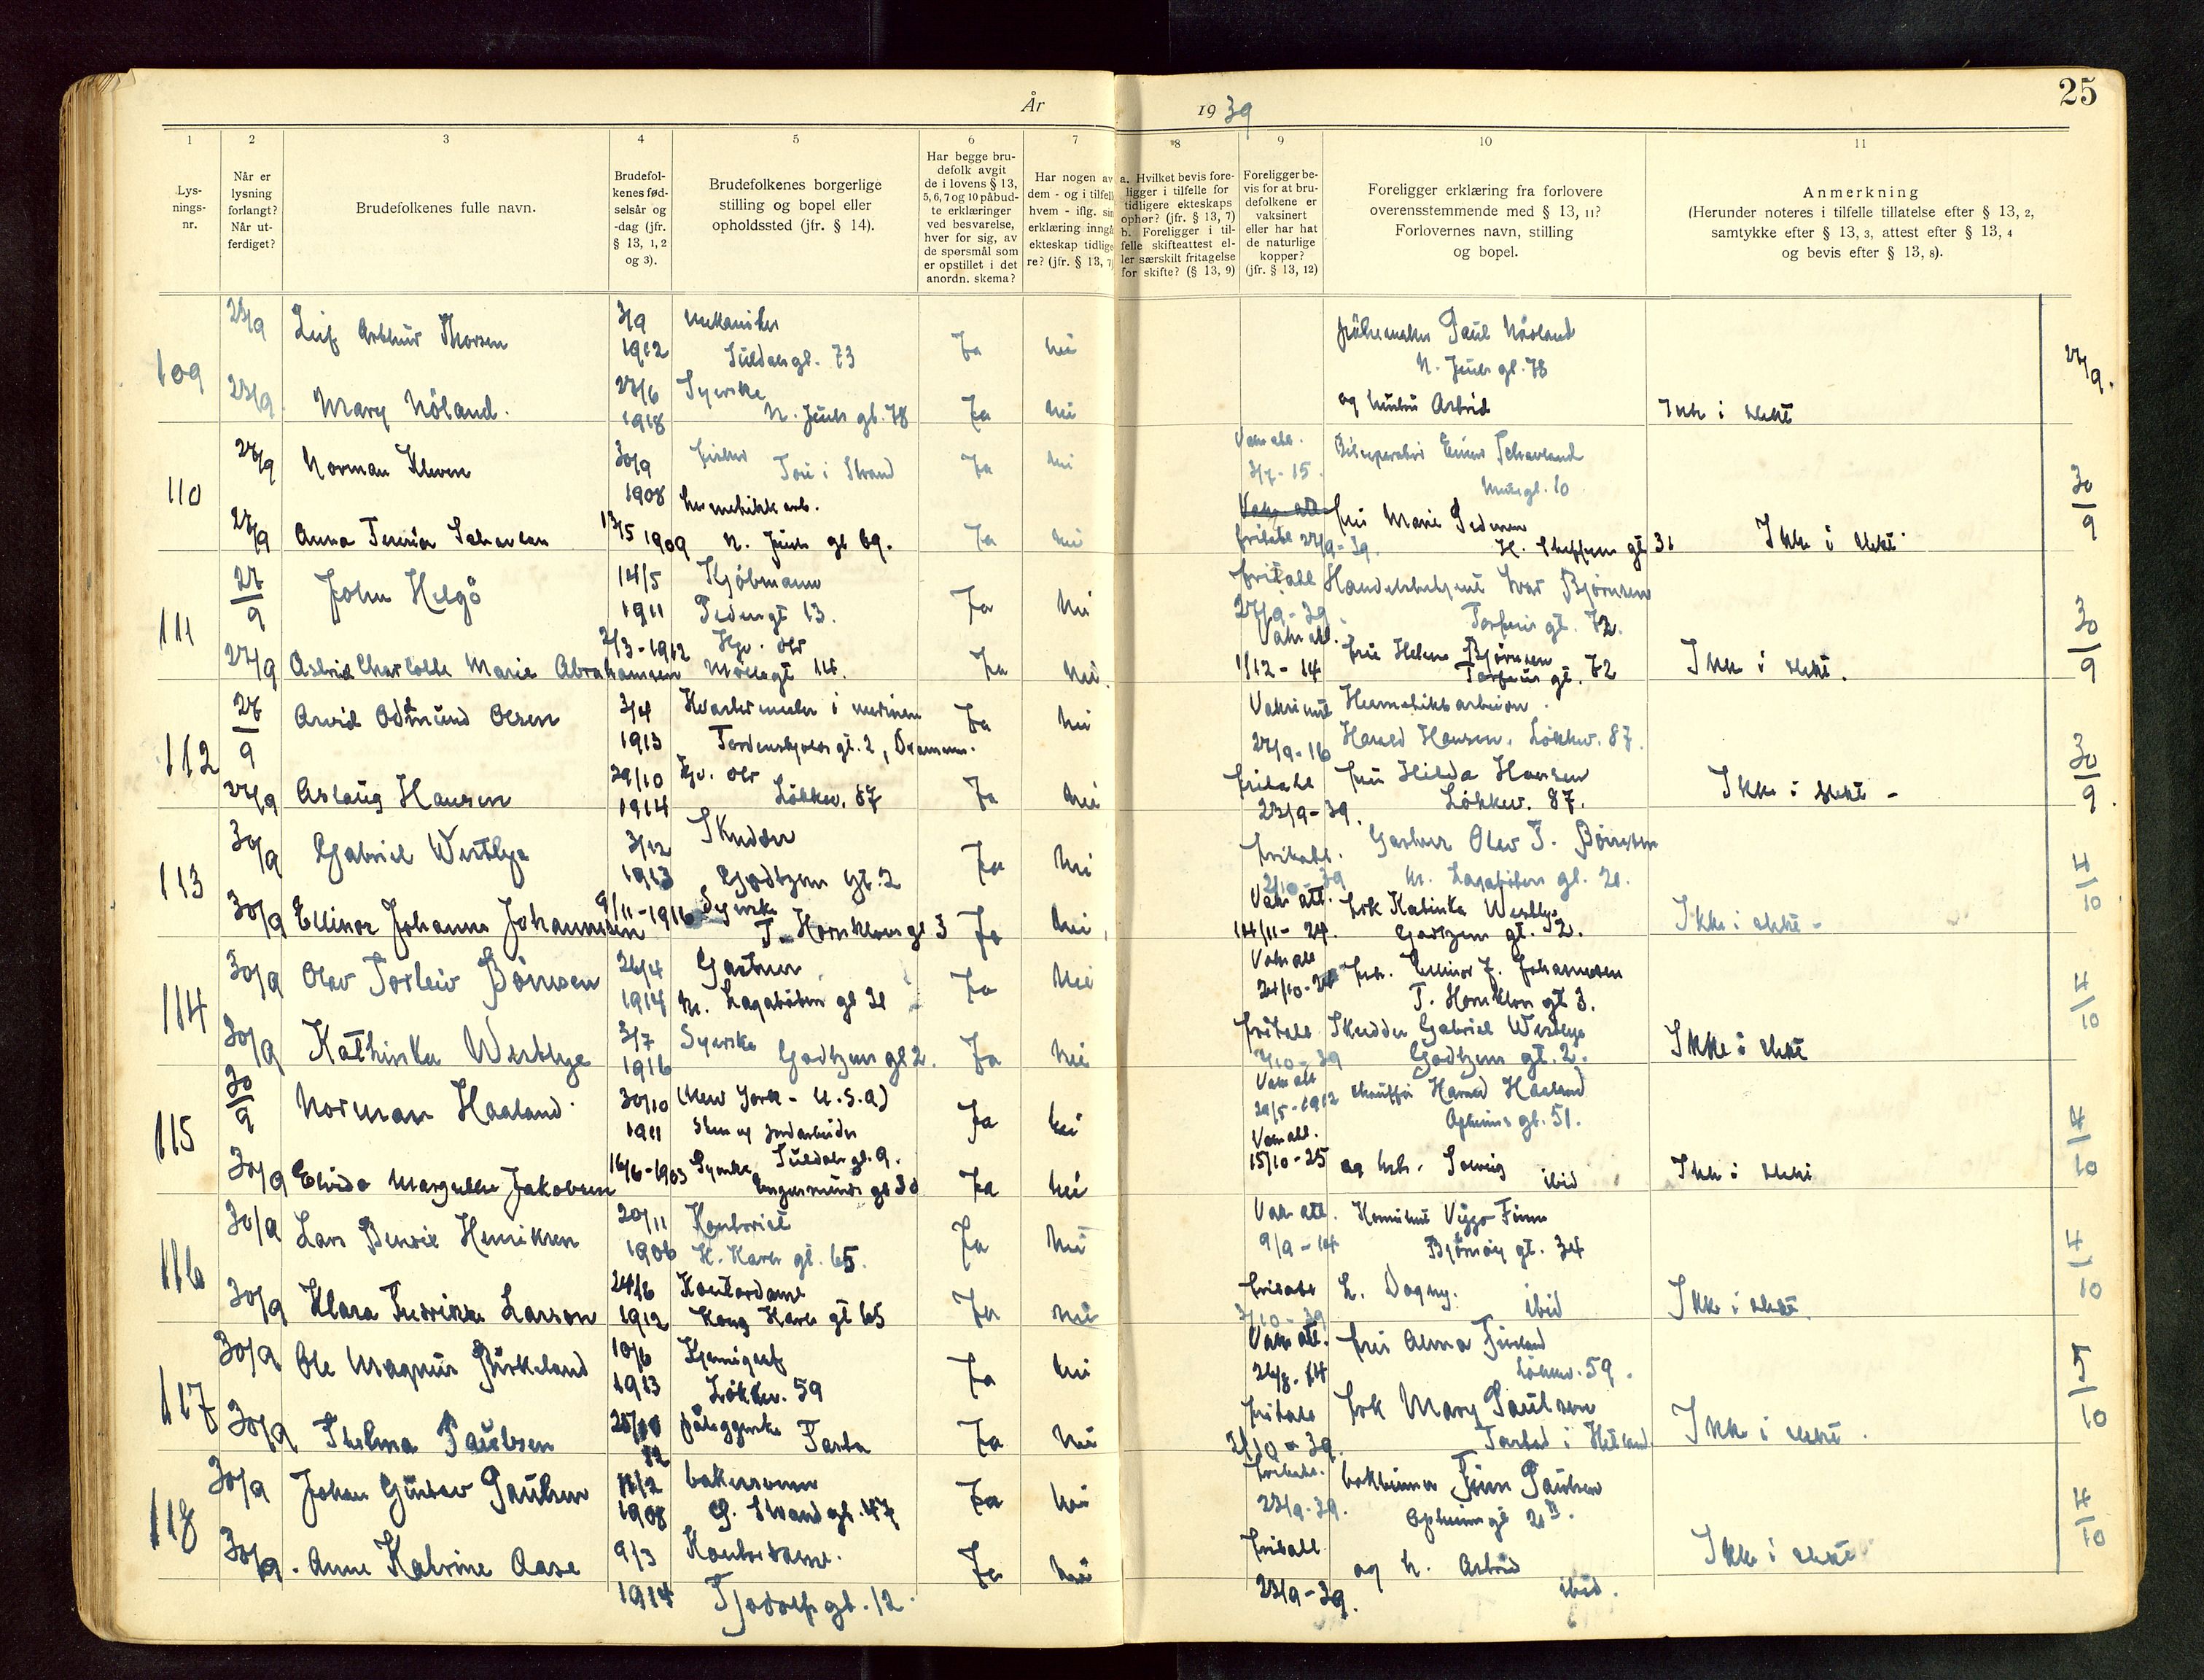 25
År 1939
1
2
3
4
5
6
7
*8
9
10
11
Lys-
nings-
nr.
Når er
lysning
forlangt?
Når ut-
ferdiget?
Brudefolkenes fulle navn.
Brudefol-
kenes fød-
selsår og
-dag (jfr.
§ 13, 1, 2
og 3).
Brudefolkenes borgerlige
stilling og bopel eller
opholdssted (jfr. § 14).
Har begge bru-
defolk avgit
de i lovens § 13,
5, 6, 7 og 10 påbud-
te erklæringer
ved besvarelse,
hver for sig, av
de spørsmål som
er opstillet i det
anordn. skema?
Har nogen av
dem - og i tilfelle
hvem - iflg. sin
erklæring inngå
ekteskap tidlige
re? (jfr. § 13, 7)
a. Hvilket bevis fore-
ligger i tilfelle for
tidligere ekteskaps
ophør? (jfr. § 13, 7)
b. Foreligger i til-
felle skifteattest el-
ler særskilt fritagelse
for skifte? (§ 13, 9)
Foreligger be-
vis for at bru-
defolkene er
vaksinert
eller har hat
de naturlige
kopper?
(jfr. § 13, 12)
Foreligger erklæring fra forlovere
overensstemmende med § 13, 11?
Forlovernes navn, stilling
og bopel.
Anmerkning
(Herunder noteres i tilfelle tillatelse efter § 13, 2,
samtykke efter § 13, 3, attest efter § 13, 4
og bevis efter § 13, 8).
109
23/9 Leif Arthur Thorsen 3/9 1912 mekaniker Suldalsgt. 73 Ja nei Paul Nóland
N. Juels gt. 78
23/9 Mary Nóland. 1918 Syerske N. Juels gt. 78 Ja nei og hustru Astrid Ikke i slekt
110
27/9 Norman Kleven 30/9 1908 fisker Tau i Strand Ja nei Vaks att. 3/7-15 Einar
27/9 Anna 13/5 1909 hermetikkarb. N. Juels gt 69. Ja nei fritatt 27/9-39. fru Marie Pedersen Ikke i slekt
30/9
111
27/9 John Helgö 14/5 1911 Kjöbmann Pedersgt 13. Ja nei fritatt 27/9-39 Ivar Björnsen
Torfæus gt. 72.
27/9 Astrid Charlotte Marie Abrahamsen 2/3-1912 Hgv. dtr Möllegt 14. Ja nei. Vaks att. 1/12-14 fru Helene Björnsen
Torfæus gt. 72 Ikke i slekt.
30/9
112
27/9 Arvid Odmund Olsen 3/4 1913 Kvartermester i marinen
Tordenskjolds gt. 2, Drammen. Ja nei Vaksinert 27/9-16 Hermetikkarbeider.
Harald Hansen. Lökkev. 87.
27/9 Aslaug Hansen 29/10 1914 Hgv. dtr Lökkev. 87 Ja nei fritatt 23/9-39. fru Hilda Hansen
Lökkev. 87. Ikke i slekt -
30/9
113
30/9 Gabriel Westbye 3/12 1913 Skredder Godtzens gt. 2 Ja nei fritatt. 2/10-39 Gartner Olav T. Bönsen
M. Lagabøters gt. 21.
30/9 Ellinor Johanne Johannessen 9/11-1916 Syerske
T. Hornklovs gt 3 Ja nei, Vaks att. 14/11-24. frk Katinka Westbye
Godtzens gt. 2. Ikke i slekt -
4/10
114
30/9 Olav Torleiv Bönsen 26/4 1914 Gartner
M. Lagabøters gt 21 Ja nei Vaks att Ellinor J. Johannessen
T. Hornklovs gt 3.
30/9 Kathinka Westbye 3/7 1916 Syerske Godtzens gt 2. Ja nei fritatt 2/10-39 Skredder Gabriel Westbye
Godtzens gt. 2. Ikke i slekt
4/10
115
30/9 Norman Haaland 30/10 1911 (New York - U.S.A)
Sten og jordarbeider
Suldals gt. 9. Ja nei Vaks att 29/5-1912 Chauffør Harald Haaland
Opheims gt. 51.
30/9 Elvida Margrethe Jakobsen 16/6-1903 Syerske Ja nei Vaks att. 15/10-25 og hstr. Solveig ibid Ikke i slekt
4/10
116
30/9 Lars Henriksen 20/11 1906 Kontorist
K. Karls gt. 65. Ja nei Vaks att. 9/9-14 Viggo Finne
Björnöy gt. 34
30/9 Klara Fredrikke Larson 24/6 1912 Kontordame
Kong Karls gt 65 Ja nei fritatt 3/10-39 h. Dagny. ibid Ikke i slekt.
4/10
117
30/9 Ole Magnus Birkeland 10/6 1913 Kjemigraf
Lökkev. 59 Ja nei Vaks att. 26/8-14 fru Alma
Lökkev. 59.
30/9 Thelma Paulsen 12 påleggerske Tasta Ja nei fritatt 2/10-39. frk Mary Paulsen
i Hetland Ikke i slekt.
5/10
118
30/9 Johan Gustav Paulsen 1908 bakersvenn
Ö. Strandgt. 47 Ja nei fritatt. 23/9-39. bokbinder Finn Paulsen
Opheims gt 21 B.
30/9. Anne Katrine Aase 9/3 1914 Kontordame.
Tjodolfs gt. 12. Ja nei fritatt 23/9-39. og h. Astrid ibid. Ikke i slekt
4/10